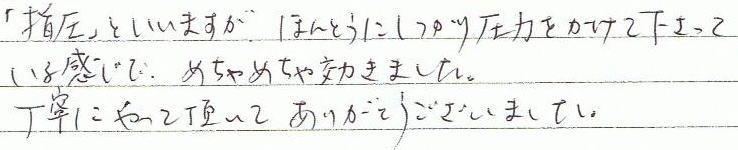 「指圧」といいますが ほんとうにしっかり圧力をかけて下さって
いる感じで、めちゃめちゃ効きました。
丁寧にやって頂いて ありがとうございました。